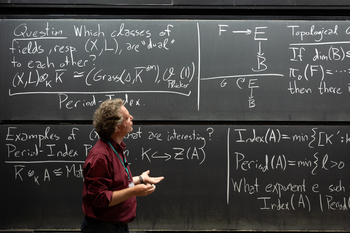 Question Which classes of
fields, resp. (X,L), are "dual"
to each other?
(X,L)⊗_K K̄ ≃ (Grass(a, K̄^{a+m}), O(1)
Plücker
Period-Index.
F → E
↓
B
G ⟳ E
↓
B
Topological
If dim(B) ≤
π₀(F) =
then there i
Examples of that are interesting?
Period-Index K ↪ Z(A)
K̄ ⊗_K A ≅ Mat
Index(A) = min{[K':K
Period(A) = min{l>0
What exponent e such
Index(A) | Period